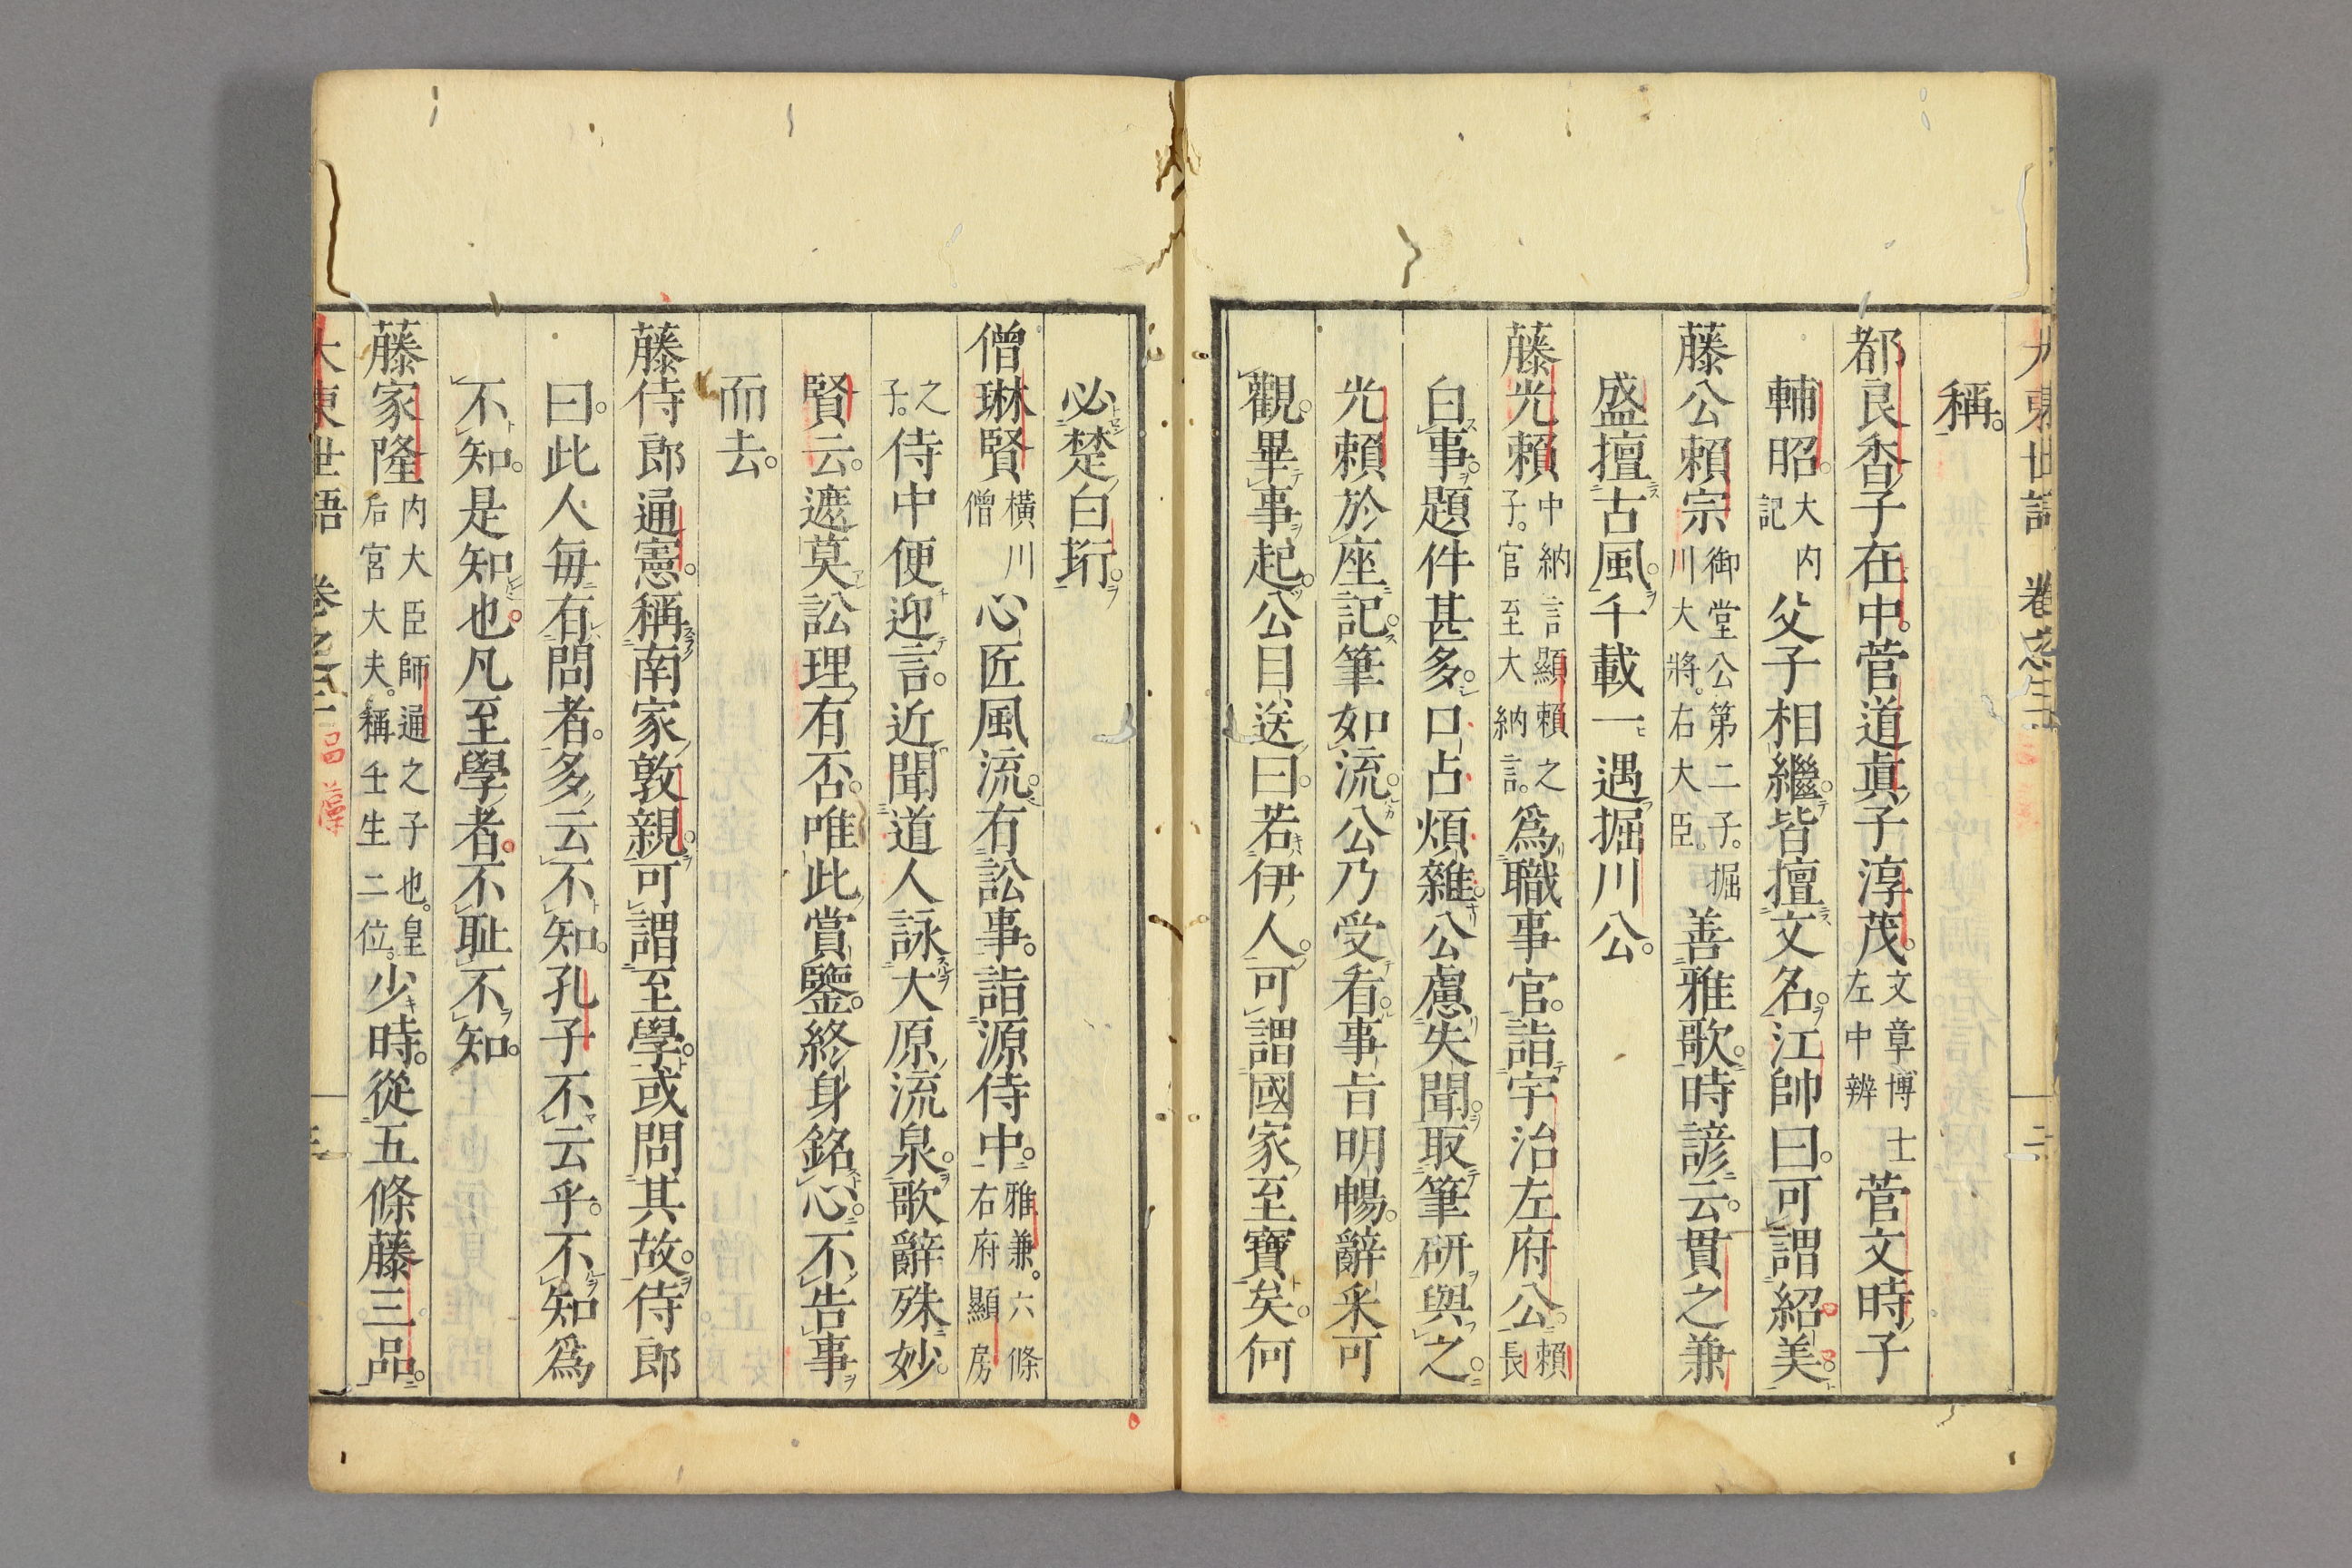 大東世語 卷之三 二
稱。
都良香子在中。菅道眞子淳茂。文章博士左中辨菅文時子
輔昭。大内記父子相繼。皆擅文名。江帥曰。可謂紹美。
藤公賴宗御堂公第二子。掘川大將。右大臣。善雅歌。時諺云。貫之兼
盛擅古風。千載一遇掘川公。
藤光賴中納言顯賴之子。官至大納言。爲職事官。詣宇治左府公賴長
白事。題件甚多。口占煩雜。公慮失聞。取筆研與之。
光賴於座記。筆如流。公乃受看。事旨明暢。辭采可
觀。畢事起。公目送曰。若伊人。可謂國家至寶矣。何
必楚白珩。
僧琳賢横川僧心匠風流。有訟事。詣源侍中。雅兼。六條右府顯房
之子。侍中便迎言。近聞道人詠大原流泉。歌辭殊妙。
賢云。遮莫訟理有否。唯此賞鑒。終身銘心。不告事
而去。
藤侍郎通憲。稱南家敦親。可謂至學。或問其故。侍郎
曰。此人每有問者。多云不知。孔子不云乎。不知爲
不知。是知也。凡至學者。不恥不知。
藤家隆内大臣師通之子也。皇后宮大夫。稱壬生二位。少時。從五條藤三品。
大東世語 卷之三